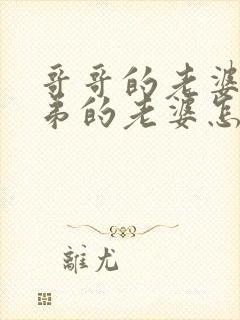 哥哥的老婆
弟的老婆怎
離尤